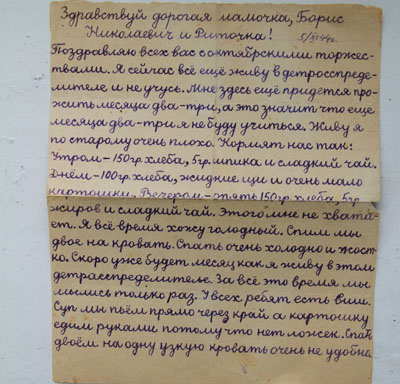 Здравствуй дорогая мамочка, Борис
Николаевич и Риточка!
5/XI 44г.
Поздравляю всех вас с октябрскими торжес-
твами. Я сейчас всё ещё живу в детросспреде-
лителе и не учусь. Мне здесь ещё придется про-
жить месяца два-три, а это значит что еще
месяца два-три я не буду учиться. Живу я
по старому очень плохо. Кормят нас так:
Утром – 150 гр. хлеба, 5 гр. шпика и сладкий чай.
Днём – 100 гр. хлеба, жидкие щи и очень мало
картошки. Вечером – опять 150 гр. хлеба, 5 гр.
жиров и сладкий чай. Этого мне не хвата-
ет. Я всё время хожу голодный. Спим мы
двое на кровать. Спать очень холодно и жост-
ко. Скоро уже будет месяц как я живу в этом
детрасспределителе. За всё это время мы
мылись только раз. У всех ребят есть вши.
Суп мы пьём прямо через край а картошку
едим руками потому что нет ложек. Спать
двоём на одну узкую кровать очень не удобно.